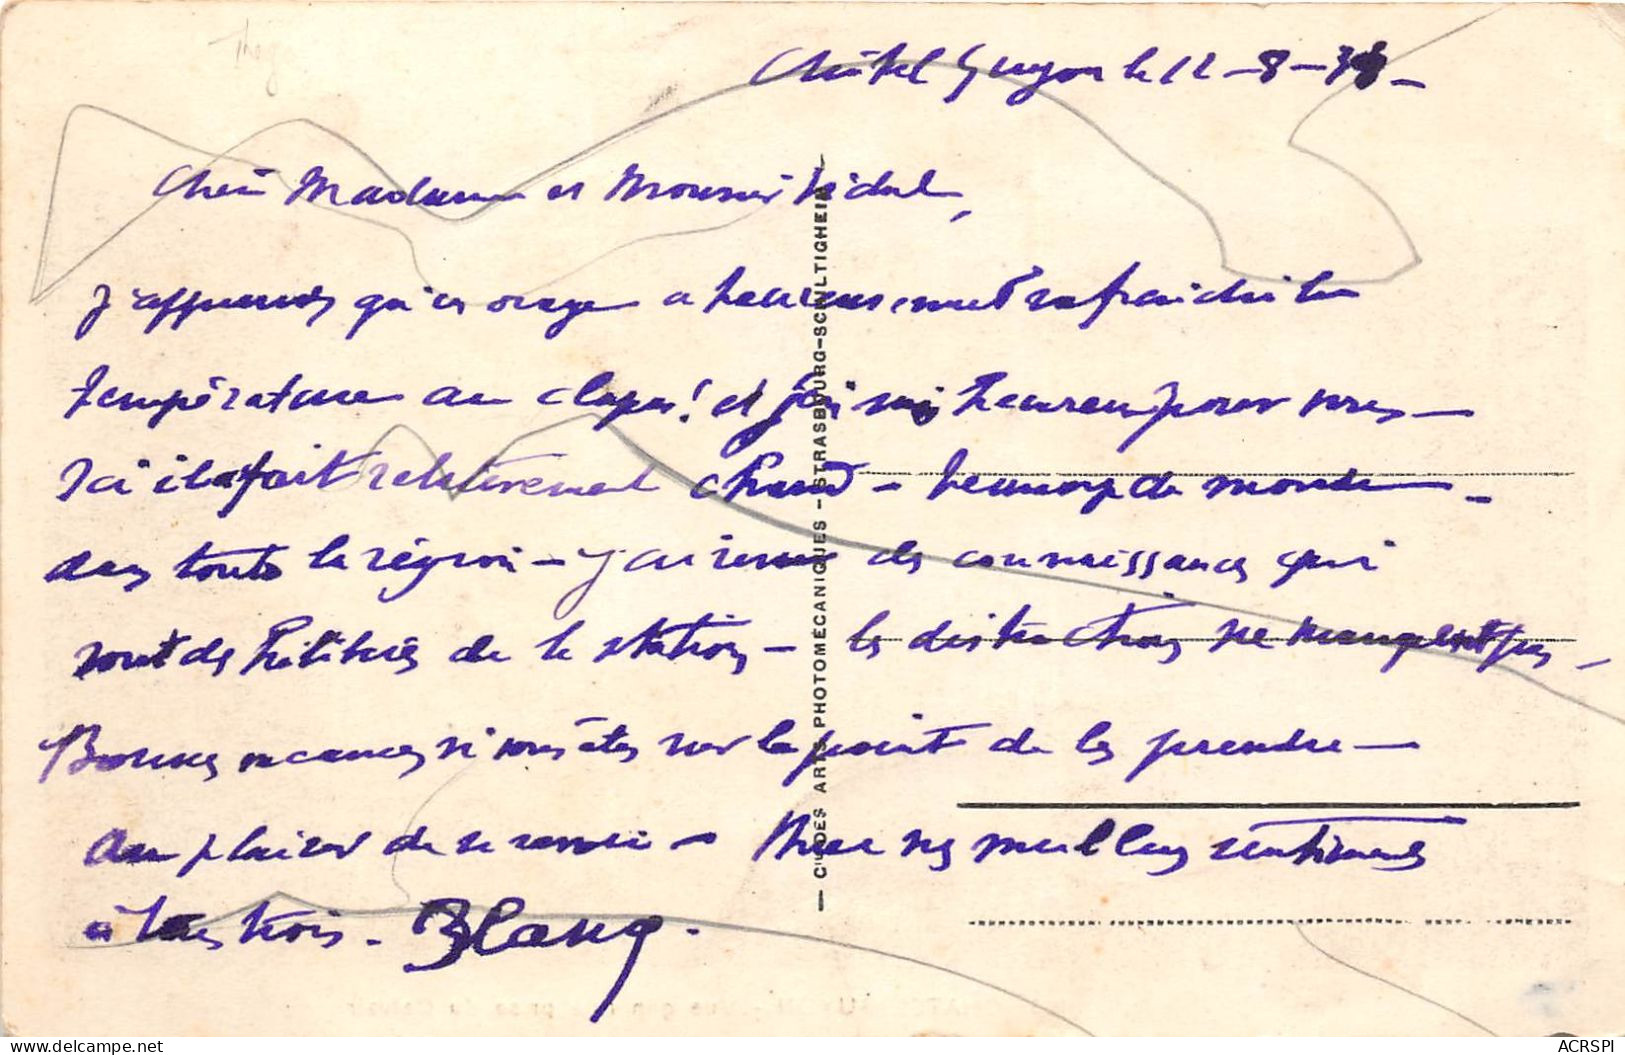 Châtel Guyon le 12-8-
Chers Madame et Monsieur Vidal,
J'apprends qu'un orage a heureusement rafraichi la
température au clapas! et j'en suis heureux pour vous —
Ici il fait relativement chaud — beaucoup de monde —
dans toute la région — J'ai revu des connaissances qui
sont des habitués de la station — les distractions ne manquent pas —
Bonnes vacances si vous êtes sur le point de les prendre —
Au plaisir de se revoir — Mes meilleurs sentiments
à tous trois. Blanq.
— Cie DES ARTS PHOTOMÉCANIQUES — STRASBOURG-SCHILTIGHEIM —
ACRSPI